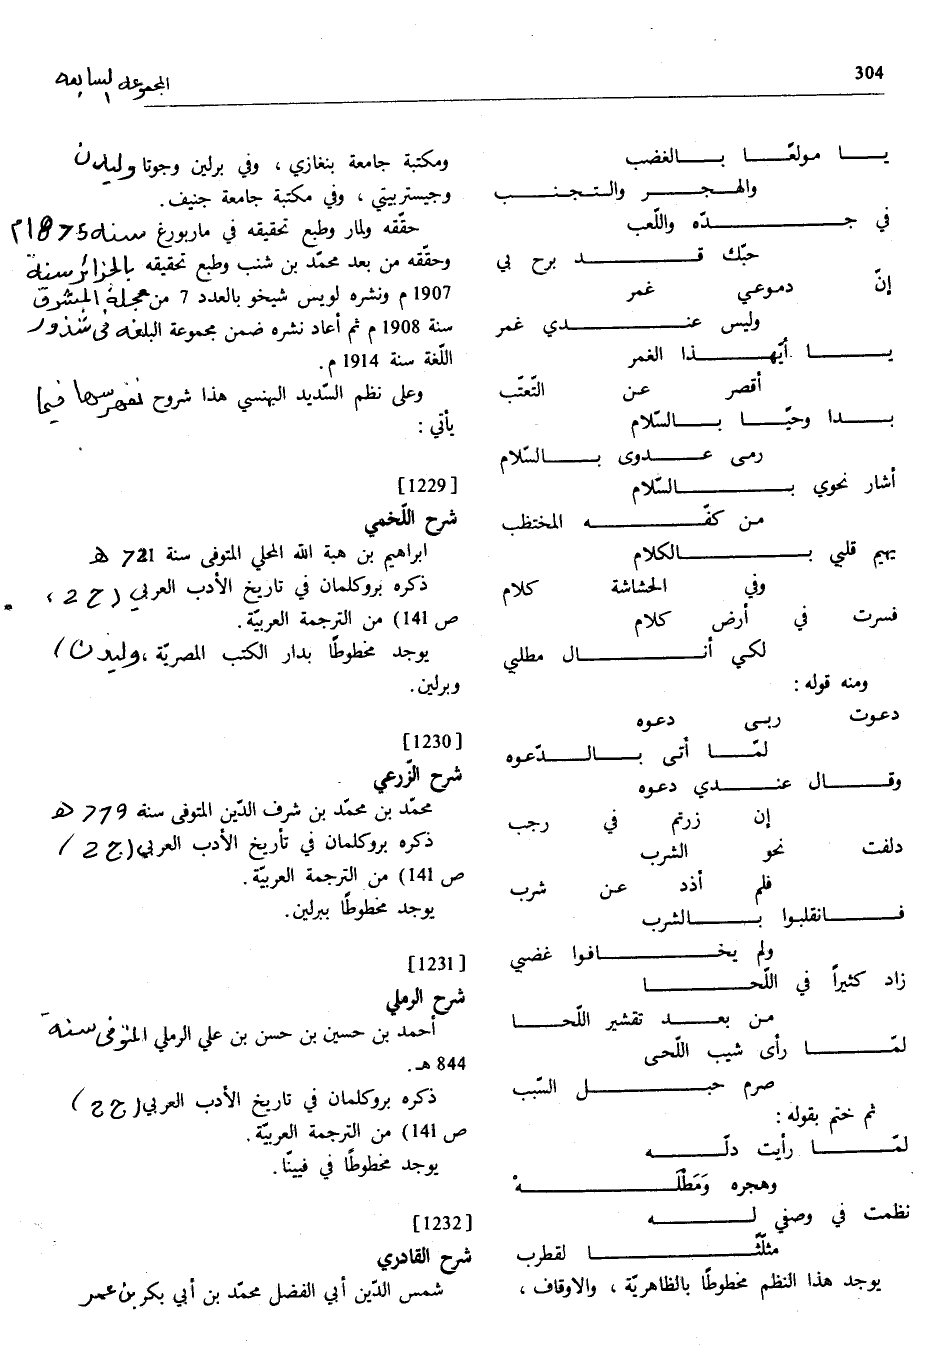 304
المجموعة السابعة
يا مولعًا بالغضب
والهجر والتجنب
في جدّه واللّعب
حبّك قد برح بي
إنّ دموعي غمر
وليس عندي غمر
يا أيّهذا الغمر
أقصر عن التّعتّب
بدا وحيّا بالسّلام
رمى عذوى بالسّلام
أشار نحوي بالسّلام
من كفّه المختظب
يهيم قلبي بالكلام
وفي الحشاشة كلام
فسرت في أرض كلام
لكي أنال مطلبي
ومنه قوله :
دعوت ربى دعوه
لمّا أتى بالدّعوه
وقال عندي دعوه
إن زرتم في رجب
دلفت نحو الشرب
فلم أذد عن شرب
فانقلبوا بالشرب
ولم يخافوا غضبي
زاد كثيراً في اللّحا
من بعد تقشير اللّحا
لمّا رأى شيب اللّحى
صرم حبل السّبب
ثم ختم بقوله :
لمّا رأيت دلّه
وهجره وَمَطْلَهْ
نظمت في وصفي له
مثلّثًا لقطرب
يوجد هذا النظم مخطوطًا بالظاهريّة ، والاوقاف ،
ومكتبة جامعة بنغازي ، وفي برلين وجوتا وليدن
وجيستربيتي ، وفي مكتبة جامعة جنيف .
حقّقه ولمار وطبع تحقيقه في ماربورغ سنة 1875م
وحقّقه من بعد محمّد بن شنب وطبع تحقيقه بالجزائر سنة
1907 م ونشره لويس شيخو بالعدد 7 من مجلة المشرق
سنة 1908 م ثم أعاد نشره ضمن مجموعة البلغة في شذور
اللّغة سنة 1914 م .
وعلى نظم السّديد البهنسي هذا شروح نفهرسها فيما
يأتي :
[1229]
شرح اللّخمي
ابراهيم بن هبة الله المحلي المتوفى سنة 721 هـ
ذكره بروكلمان في تاريخ الأدب العربي (ج 2 ،
ص 141) من الترجمة العربيّة .
يوجد مخطوطًا بدار الكتب المصريّة ، وليدن ،
وبرلين .
[1230]
شرح الزّرعي
محمّد بن محمّد بن شرف الدّين المتوفى سنة 779 هـ
ذكره بروكلمان في تأريخ الأدب العربي (ج 2 /
ص 141) من الترجمة العربيّة .
يوجد مخطوطًا ببرلين .
[1231]
شرح الرملي
أحمد بن حسين بن حسن بن علي الرملي المتوفى سنة
844 هـ .
ذكره بروكلمان في تاريخ الأدب العربي (ج /
ص 141) من الترجمة العربيّة .
يوجد مخطوطًا في فيينّا .
[1232]
شرح القادري
شمس الدّين أبي الفضل محمّد بن أبي بكر بن عمر